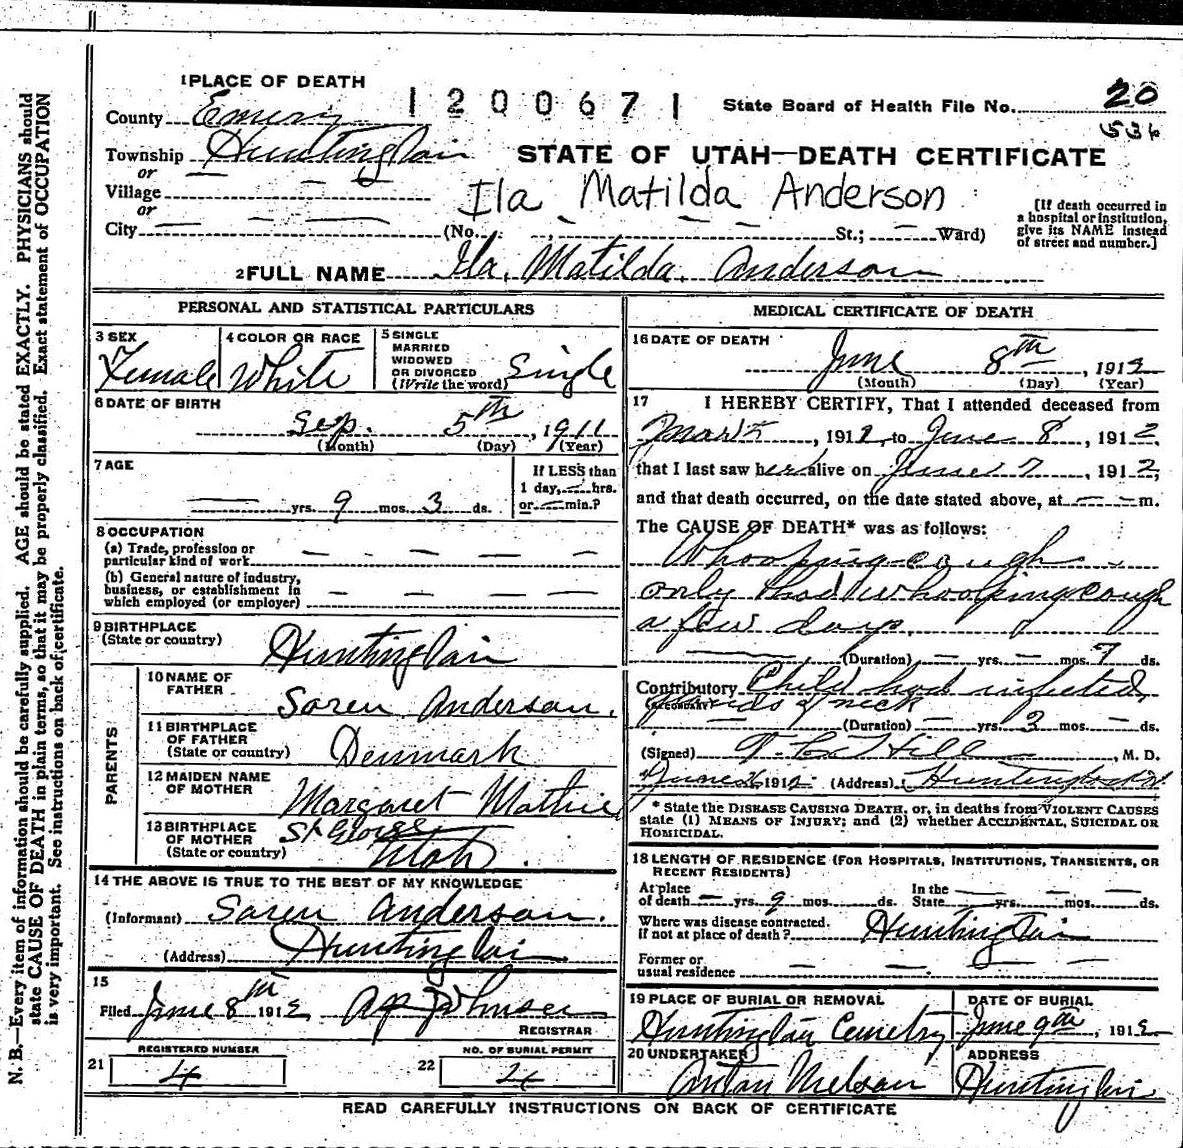 1 PLACE OF DEATH
1200671
State Board of Health File No. 20
536
County Emery
Township Huntington
or
Village
or
City
STATE OF UTAH—DEATH CERTIFICATE
Ila Matilda Anderson
(No. St.; Ward)
[If death occurred in
a hospital or institution,
give its NAME instead
of street and number.]
2 FULL NAME Ila Matilda Anderson
PERSONAL AND STATISTICAL PARTICULARS
3 SEX
Female
4 COLOR OR RACE
White
5 SINGLE
MARRIED
WIDOWED
OR DIVORCED
(Write the word) Single
6 DATE OF BIRTH
Sep. 5th, 1911
(Month) (Day) (Year)
7 AGE
yrs. 9 mos. 3 ds.
If LESS than
1 day, hrs.
or min.?
8 OCCUPATION
(a) Trade, profession or
particular kind of work
(b) General nature of industry,
business, or establishment in
which employed (or employer)
9 BIRTHPLACE
(State or country)
Huntington
PARENTS
10 NAME OF
FATHER
Soren Anderson.
11 BIRTHPLACE
OF FATHER
(State or country)
Denmark
12 MAIDEN NAME
OF MOTHER
Margaret Mathie
13 BIRTHPLACE
OF MOTHER
(State or country)
St George
Utah.
14 THE ABOVE IS TRUE TO THE BEST OF MY KNOWLEDGE
(Informant) Soren Anderson.
(Address) Huntington.
15
Filed June 8th 1912, Johnson
REGISTRAR
REGISTERED NUMBER
21 4
NO. OF BURIAL PERMIT
22 4
MEDICAL CERTIFICATE OF DEATH
16 DATE OF DEATH
June 8th, 1912
(Month) (Day) (Year)
17 I HEREBY CERTIFY, That I attended deceased from
, 1912, to June 8, 1912,
that I last saw her alive on June 7, 1912,
and that death occurred, on the date stated above, at m.
The CAUSE OF DEATH* was as follows:
Whooping cough
only had whooping cough
a few days.
(Duration) yrs. mos. 7 ds.
Contributory Child had infected
(SECONDARY) glands of neck
(Duration) yrs. 3 mos. ds.
(Signed) Hill, M. D.
June 1912 (Address) Huntington
* State the DISEASE CAUSING DEATH, or, in deaths from VIOLENT CAUSES
state (1) MEANS OF INJURY; and (2) whether ACCIDENTAL, SUICIDAL OR
HOMICIDAL.
18 LENGTH OF RESIDENCE (FOR HOSPITALS, INSTITUTIONS, TRANSIENTS, OR
RECENT RESIDENTS)
At place
of death yrs. 9 mos. ds.
In the
State yrs. mos. ds.
Where was disease contracted.
if not at place of death? Huntington
Former or
usual residence
19 PLACE OF BURIAL OR REMOVAL
Huntington Cemetry
DATE OF BURIAL
June 9th, 1912
20 UNDERTAKER
Anton Nielson
ADDRESS
Huntington
READ CAREFULLY INSTRUCTIONS ON BACK OF CERTIFICATE
N. B.—Every item of information should be carefully supplied. AGE should be stated EXACTLY. PHYSICIANS should
state CAUSE OF DEATH in plain terms, so that it may be properly classified. Exact statement of OCCUPATION
is very important. See instructions on back of certificate.